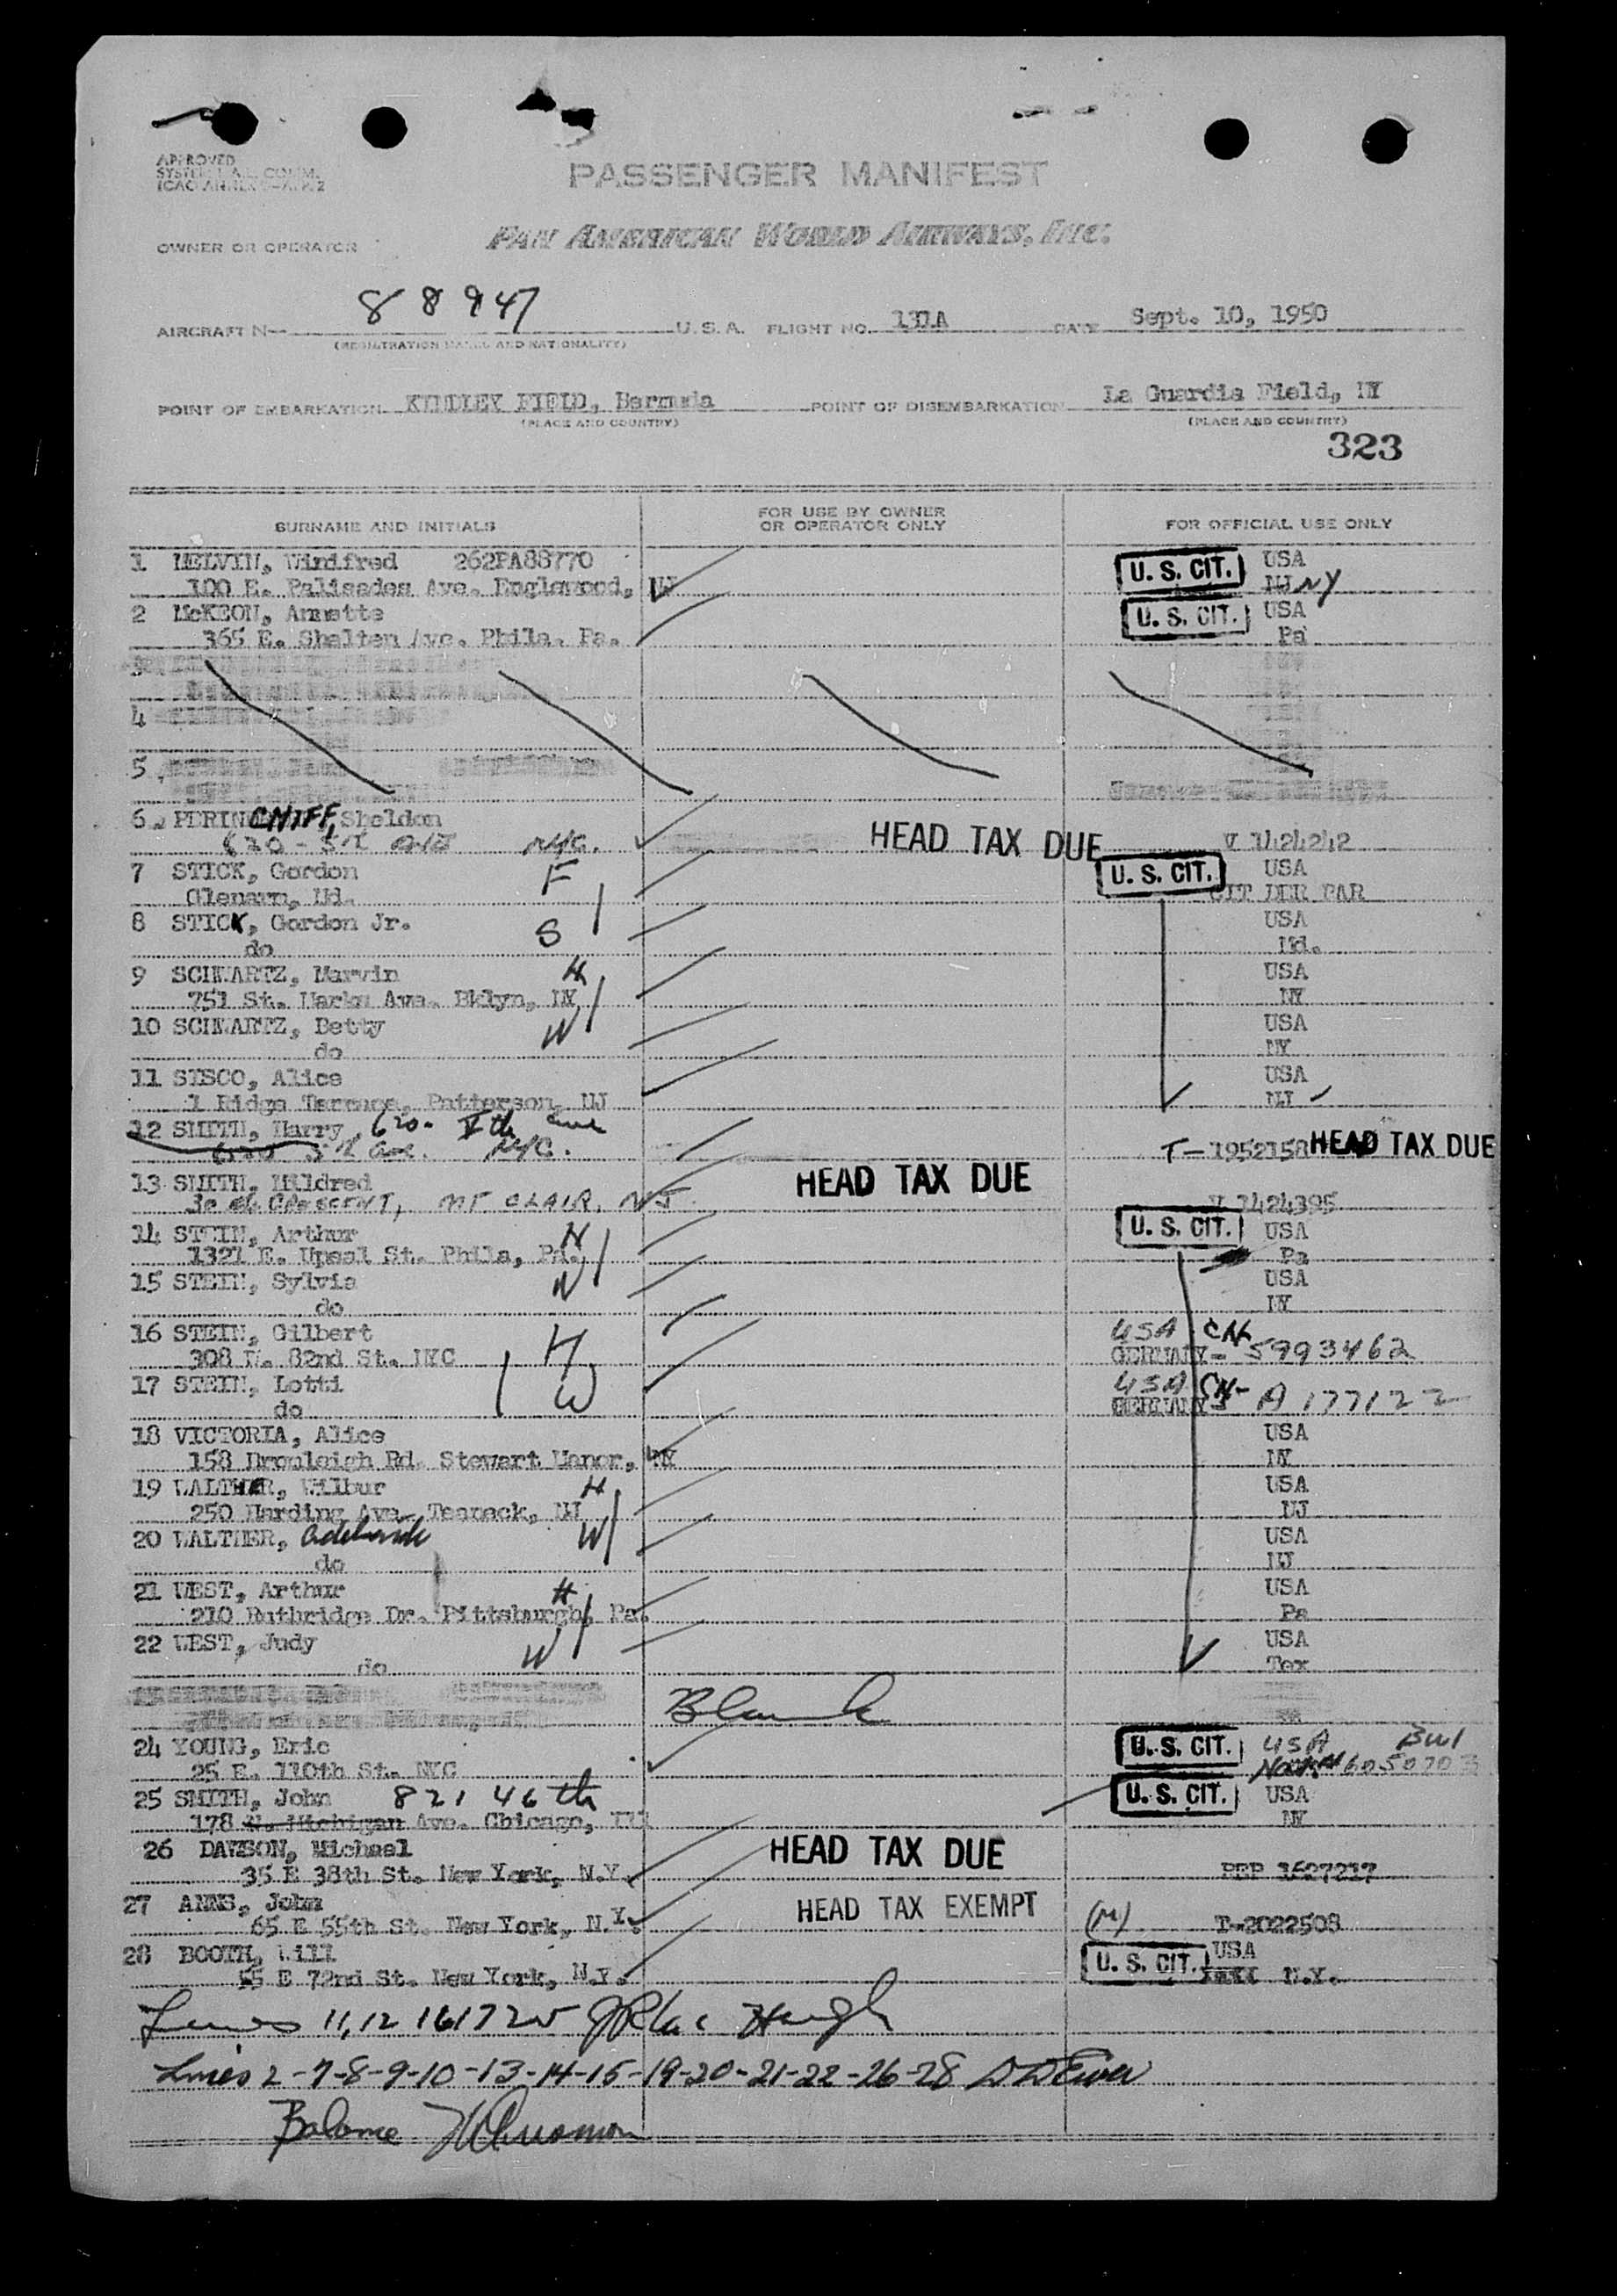 APPROVED
PASSENGER MANIFEST
OWNER OR OPERATOR PAN AMERICAN WORLD AIRWAYS, INC.
AIRCRAFT N— 88947 U.S.A. FLIGHT NO. 131A DATE Sept. 10, 1950
(REGISTRATION MARKS AND NATIONALITY)
POINT OF EMBARKATION KINDLEY FIELD, Bermuda POINT OF DISEMBARKATION La Guardia Field, NY
(PLACE AND COUNTRY) (PLACE AND COUNTRY)
323
SURNAME AND INITIALS FOR USE BY OWNER OR OPERATOR ONLY FOR OFFICIAL USE ONLY
1 MELVIN, Winifred 262PA88770 U. S. CIT. USA
100 E. Palisades Ave. Englewood, NJ NJ NY
2 McKEON, Annette U. S. CIT. USA
365 E. Shelten Ave. Phila. Pa. Pa
3
4
5
6 CHIFF, Sheldon
620 - 5th Ave NYC. HEAD TAX DUE V 1424242
7 STICK, Gordon F U. S. CIT. USA
Glenarm, Md. CIT DER PAR
8 STICK, Gordon Jr. S USA
do Md.
9 SCHWARTZ, Marvin H USA
751 St. Marks Ave. Bklyn, NY NY
10 SCHWARTZ, Betty W USA
do NY
11 SISCO, Alice USA
1 Ridge Terrace, Patterson, NJ NJ
12 SMITH, Harry 620- Vth Ave
5th Ave. NYC. T-1952158 HEAD TAX DUE
13 SMITH, Mildred HEAD TAX DUE
CRESCENT, MT CLAIR, NJ V 1424395
14 STEIN, Arthur H U. S. CIT. USA
1321 E. Upsal St. Phila, Pa. Pa
15 STEIN, Sylvia W USA
do NY
16 STEIN, Gilbert H USA CN
308 W. 82nd St. NYC GERMANY - 5993462
17 STEIN, Lotti W USA CN-
do GERMANY A 177122
18 VICTORIA, Alice USA
158 Rd. Stewart Manor, NY NY
19 WALTHER, Wilbur H USA
250 Harding Ave. Teaneck, NJ NJ
20 WALTHER, Adelaide W USA
do NJ
21 WEST, Arthur H USA
210 Ruthridge Dr. Pittsburgh, Pa. Pa
22 WEST, Judy W USA
do Tex
Blank
24 YOUNG, Eric U. S. CIT. USA BWI
25 E. 110th St. NYC
25 SMITH, John 821 46th U. S. CIT. USA
178 N. Michigan Ave. Chicago, Ill NY
26 DAWSON, Michael HEAD TAX DUE
35 E 38th St. New York, N.Y. REP 1627217
27 ANNS, John HEAD TAX EXEMPT
65 E 55th St. New York, N.Y. (M) T-2022508
28 BOOTH, Will U. S. CIT. USA
55 E 72nd St. New York, N.Y. N.Y.
Lines 11, 12 16 17 25
Lines 2-7-8-9-10-13-14-15-19-20-21-22-26-28
Balance